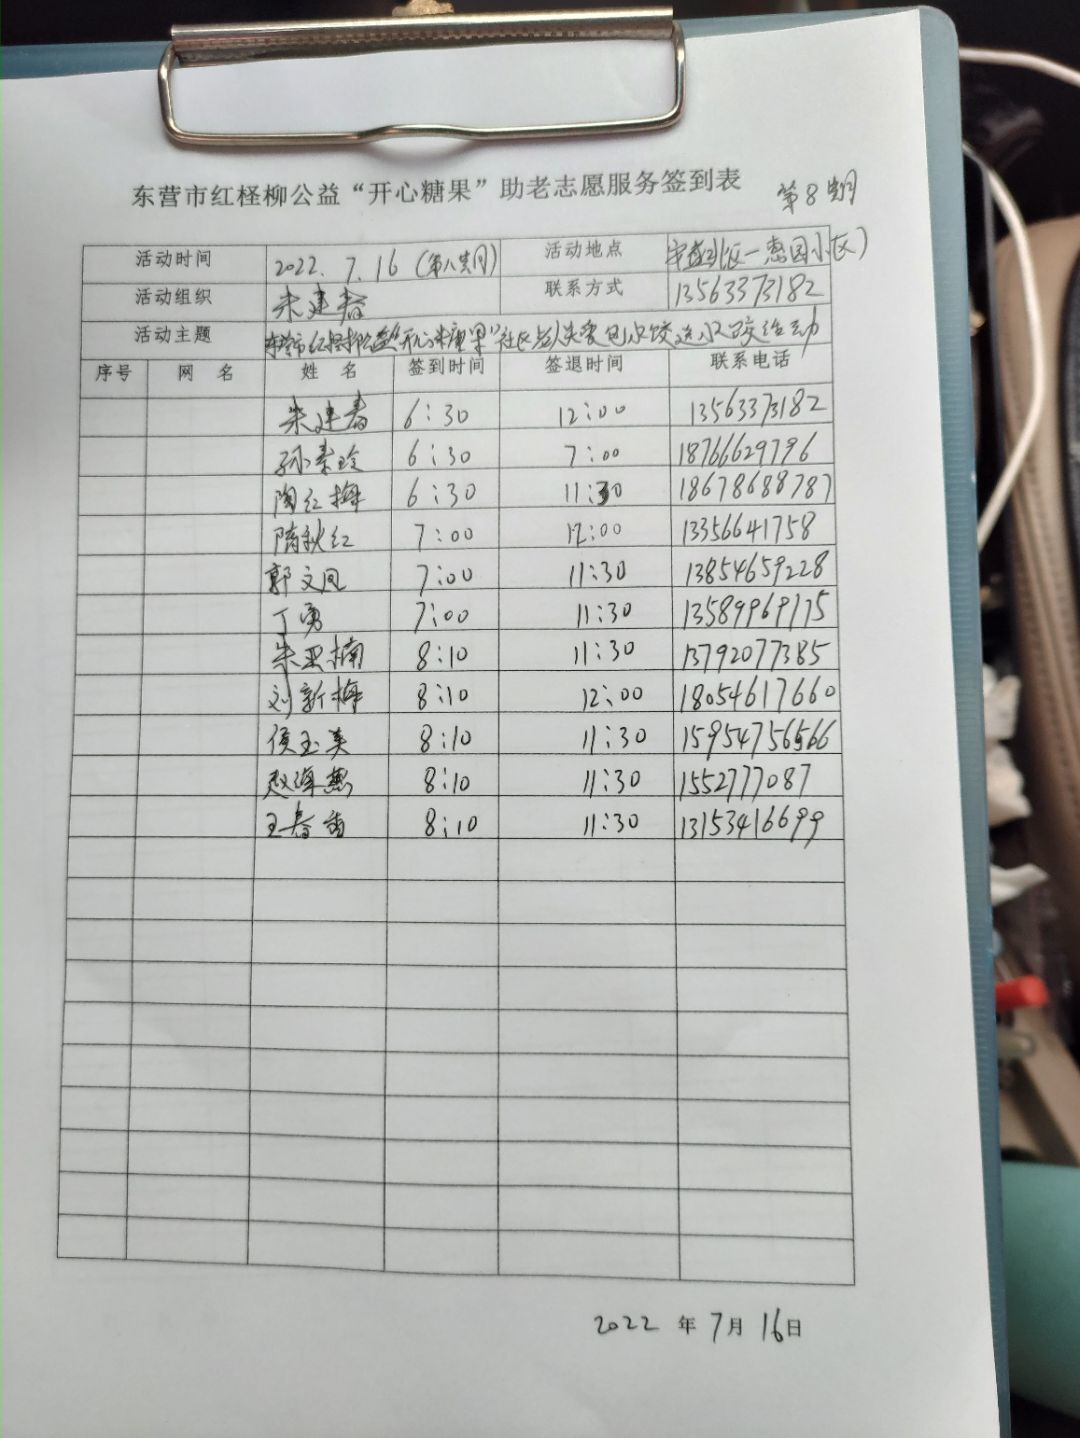 东营市红柽柳公益“开心糖果”助老志愿服务签到表 第8期
活动时间 2022.7.16（第八期） 活动地点 区一惠园小区）
活动组织 朱建春 联系方式 13563373182
活动主题 东营市红柽柳公益“开心糖果”社区老人关爱包水饺送水饺活动
序号 网名 姓名 签到时间 签退时间 联系电话
朱建春 6:30 12:00 13563373182
孙素玲 6:30 7:00 18766629796
陶红梅 6:30 11:30 18678688787
隋秋红 7:00 12:00 13356641758
郭文凤 7:00 11:30 13854659228
丁勇 7:00 11:30 13589969175
朱亚楠 8:10 11:30 13792077385
刘新梅 8:10 12:00 18054617660
侯玉美 8:10 11:30 15954756566
赵海燕 8:10 11:30 1552777087
王春香 8:10 11:30 13153416699
2022年7月16日